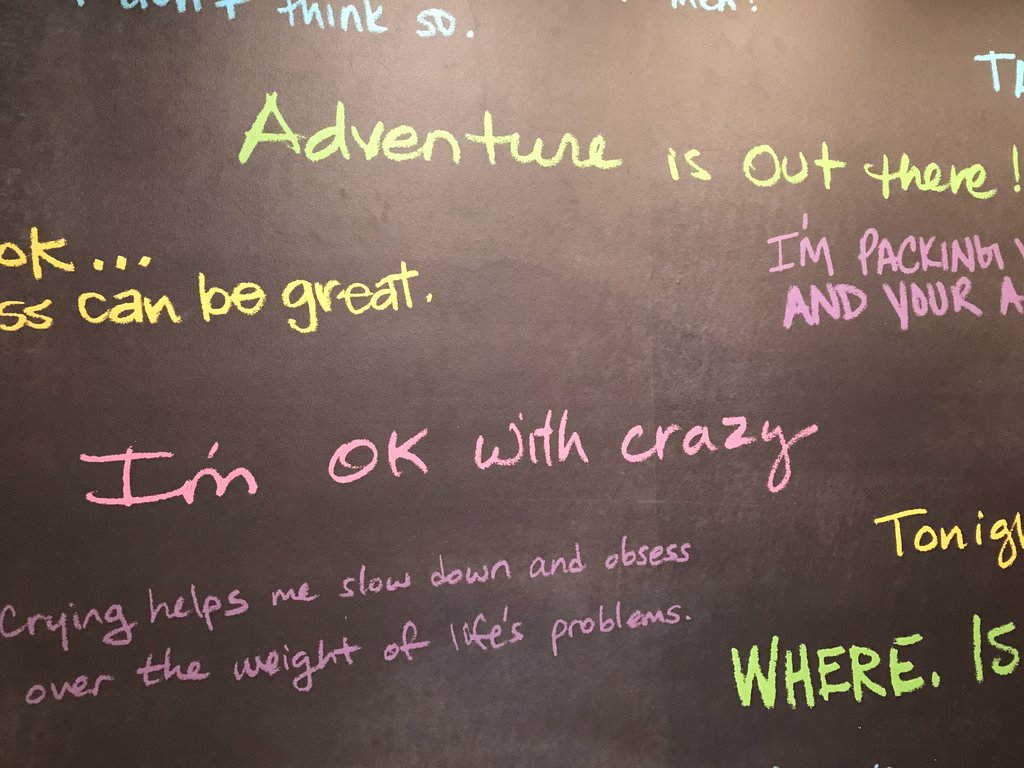 don't think so.
men!
Adventure is out there!
OK...
can be great.
I'M PACKING
AND YOUR
I'm OK with crazy
Crying helps me slow down and obsess
over the weight of life's problems.
WHERE. IS